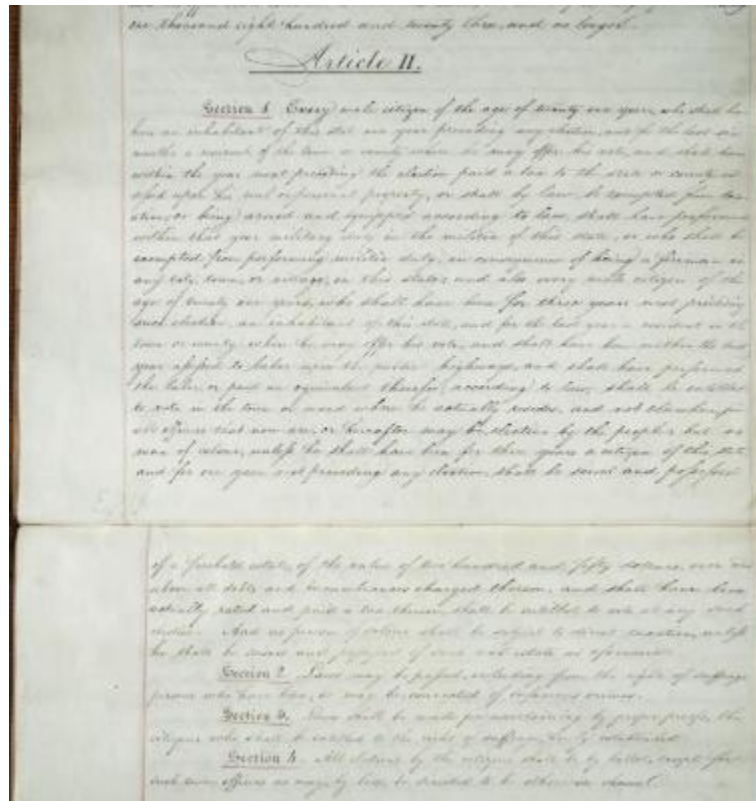 one thousand eight hundred and twenty three, and no longer.
Article II.
Section 1. Every male citizen of the age of twenty one years, who shall have
been an inhabitant of this state one year preceding any election, and for the last six
months a resident of the town or county where he may offer his vote, and shall have
within the year next preceding the election paid a tax to the state or county as-
sessed upon his real or personal property, or shall by law, be exempted from tax-
ation; or being armed and equipped according to law, shall have performed
within that year military duty in the militia of this state, or who shall be
exempted from performing militia duty, in consequence of being a fireman in
any city, town, or village, in this state; and also every male citizen of the
age of twenty one years, who shall have been for three years next preceding
such election, an inhabitant of this state, and for the last year a resident in the
town or county, where he may offer his vote, and shall have been within the last
year assessed to labor upon the public highways, and shall have performed
the labor, or paid an equivalent therefor, according to law, shall be entitled
to vote in the town or ward where he actually resides, and not elsewhere, for
all officers that now are, or hereafter may be elective by the people; but no
man of colour, unless he shall have been for three years a citizen of this state
and for one year next preceding any election, shall be seized and possessed
of a freehold estate, of the value of two hundred and fifty dollars, over and
above all debts and incumbrances charged thereon, and shall have been
actually rated and paid a tax thereon, shall be entitled to vote at any such
election. And no person of colour shall be subject to direct taxation, unless
he shall be seized and possessed of such real estate as aforesaid.
Section 2. Laws may be passed, excluding from the right of suffrage
persons who have been, or may be, convicted of infamous crimes.
Section 3. Laws shall be made for ascertaining by proper proofs, the
citizens who shall be entitled to the right of suffrage, hereby established.
Section 4. All elections by the citizens shall be by ballot, except for
such town officers as may by law, be directed to be otherwise chosen.